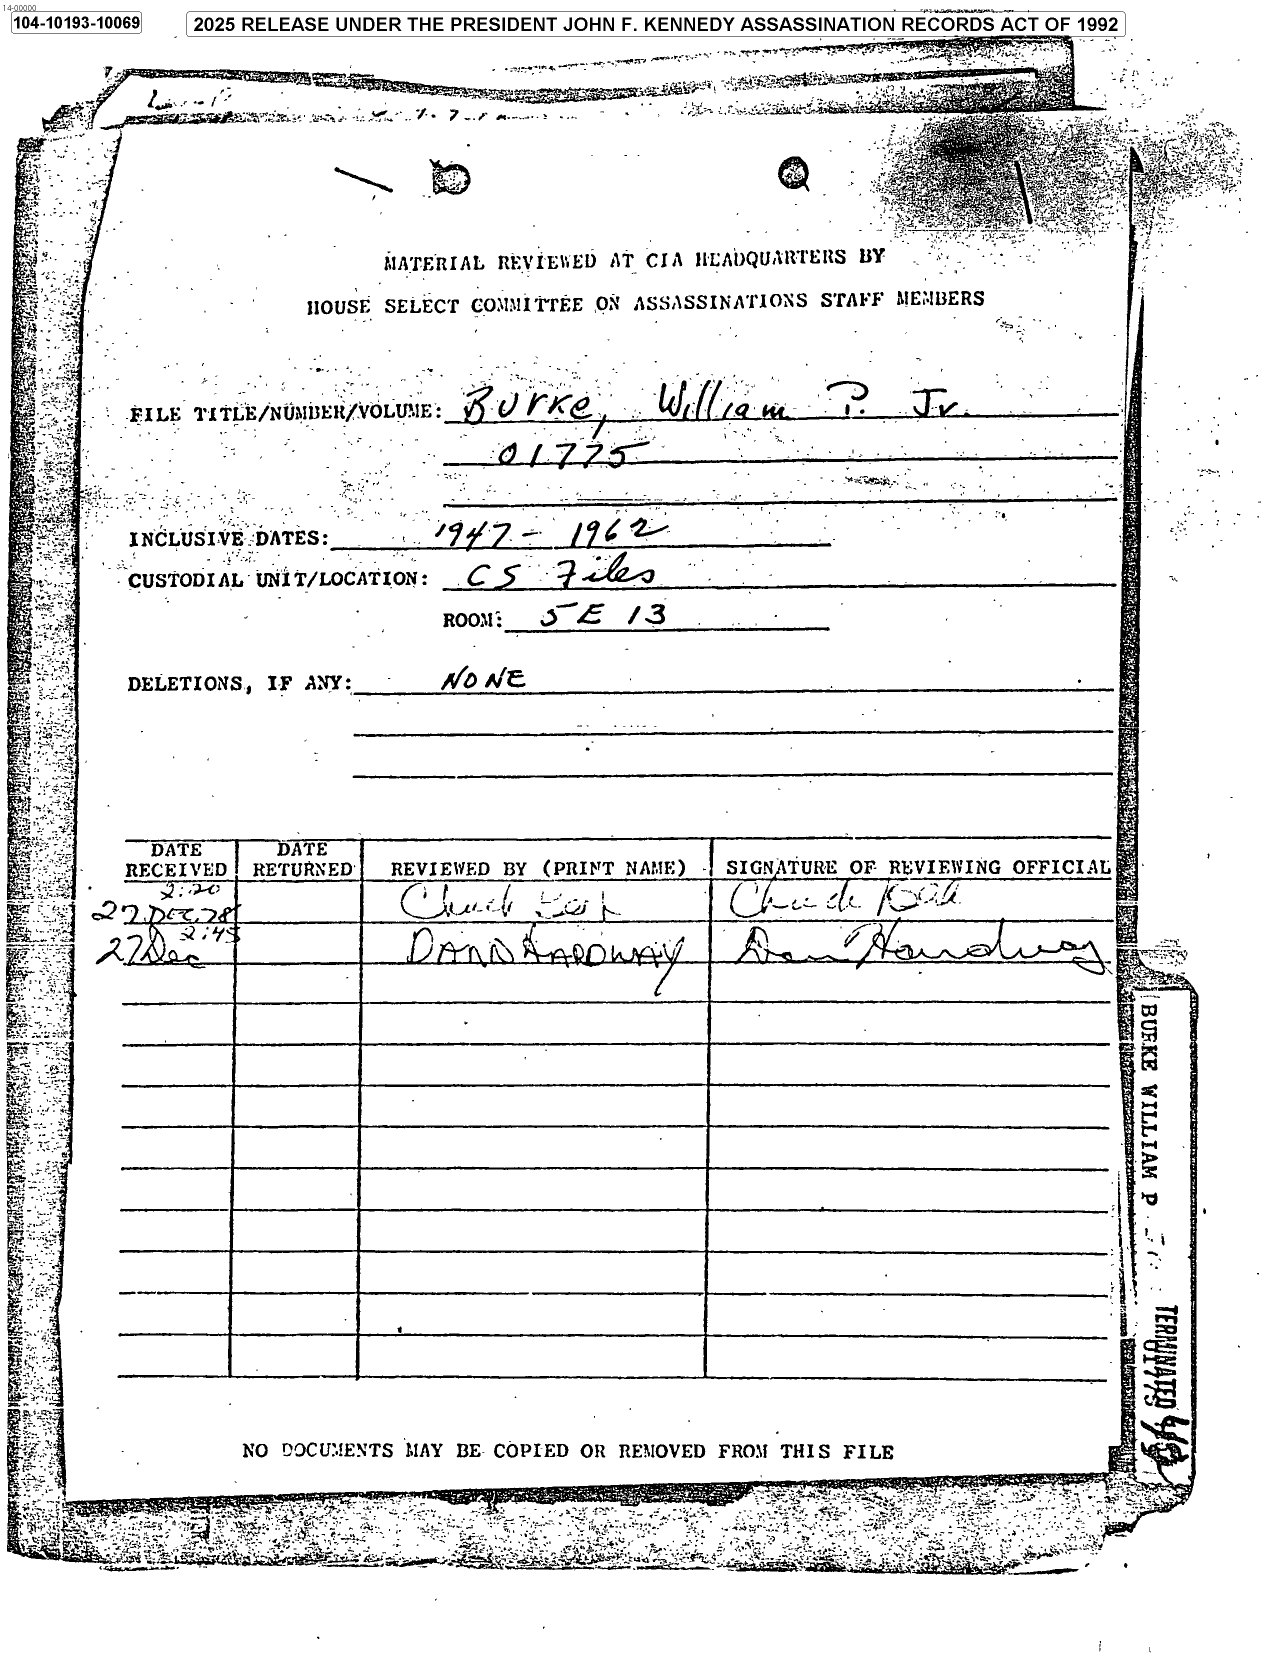 14-00000
104-10193-10069
2025 RELEASE UNDER THE PRESIDENT JOHN F. KENNEDY ASSASSINATION RECORDS ACT OF 1992
MATERIAL REVIEWED AT CIA HEADQUARTERS BY
HOUSE SELECT COMMITTEE ON ASSASSINATIONS STAFF MEMBERS
FILE TITLE/NUMBER/VOLUME: Burke, William P. Jr.
01775
INCLUSIVE DATES: 1947 - 1962
CUSTODIAL UNIT/LOCATION: CS Files
ROOM: 5 E 13
DELETIONS, IF ANY: NONE
DATE RECEIVED DATE RETURNED REVIEWED BY (PRINT NAME) SIGNATURE OF REVIEWING OFFICIAL
2:20
27 DEC 78 Chuck Chuck
2:45
27 Dec DAN HARDWAY Dan Hardway
BURKE WILLIAM P Jr.
TERMINATED
01775
NO DOCUMENTS MAY BE COPIED OR REMOVED FROM THIS FILE